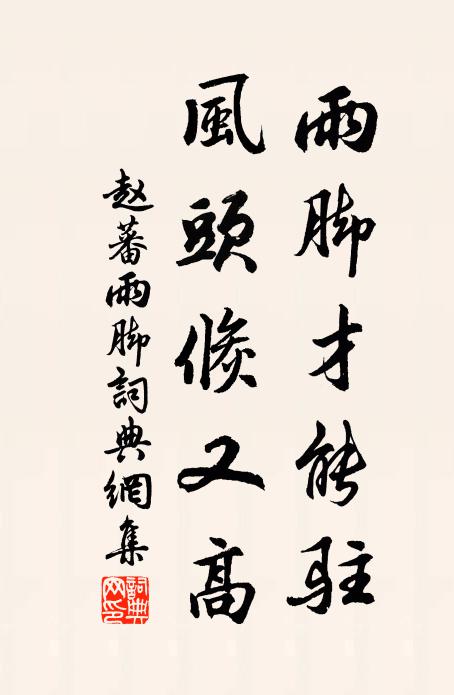 雨脚才能驻
風頭倐又高
赵蕃雨脚詞典網集
詞典網印